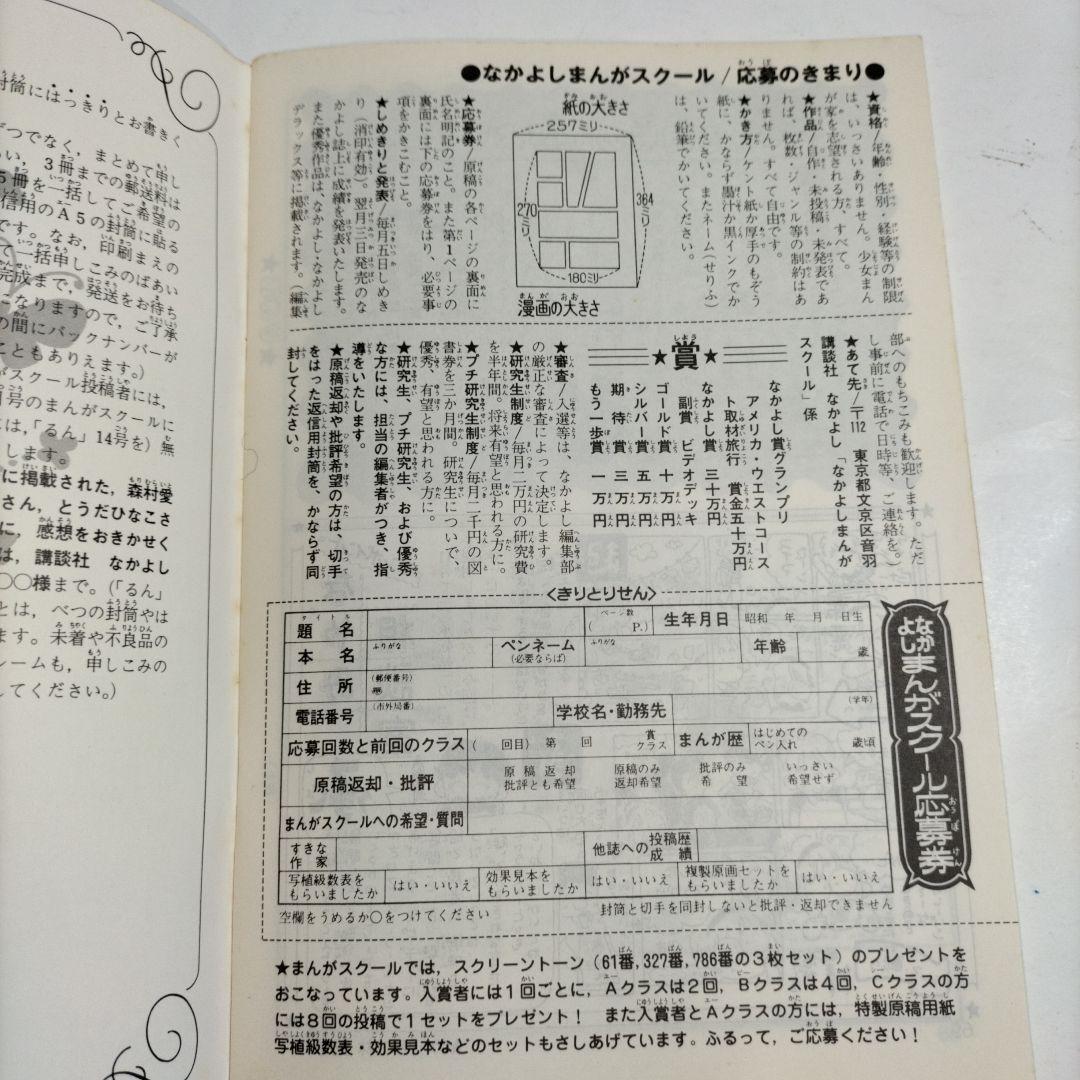 封筒にはっきりとお書きく
ずつでなく，まとめて申し
らい，3冊までの郵送料は
5冊を一括してご希望の
信用のA5の封筒に貼る
です。なお，印刷まえの
て一括申しこみのばあい
完成まで，発送をお待ち
になりますので，ご了承
の間にバックナンバーが
こともありえます。）
がスクール投稿者には，
号のまんがスクールに
には，「るん」14号を）無
します。
に掲載された，森村愛
さん，とうだひなこさ
に，感想をおきかせく
は，講談社 なかよし
〇〇様まで。（「るん」
とは，べつの封筒やは
ます。未着や不良品の
レームも，申しこみの
してください。）
●なかよしまんがスクール／応募のきまり●
★資格／年齢・性別・経験等の制限
は、いっさいありません。少女まん
が家を志望される方、すべて。
★作品／自作・未投稿・未発表であ
れば、枚数・ジャンル等の制約はあ
りません。すべて自由です。
★かき方／ケント紙か厚手のもぞう
紙に、かならず墨汁か黒インクでか
いてください。またネーム（せりふ）
は、鉛筆でかいてください。
紙の大きさ
257ミリ
364ミリ
270ミリ
180ミリ
漫画の大きさ
★応募券／原稿の各ページの裏面に
氏名明記のこと。また第1ページの
裏面には下の応募券をはり、必要事
項をかきこむこと。
★しめきりと発表／毎月五日しめき
り（消印有効）。翌月三日発売のな
かよし誌上に成績を発表いたします。
また優秀作品は、なかよし・なかよし
デラックス等に掲載されます。（編集
部へのもちこみも歓迎します。ただ
し事前に電話で日時等、ご連絡を。）
★あて先／〒112 東京都文京区音羽
講談社 なかよし「なかよしまんが
スクール」係
★賞★
なかよし賞グランプリ
アメリカ・ウエストコース
ト取材旅行 賞金五十万円
なかよし賞 三十万円
副賞 ビデオデッキ
ゴールド賞 十万円
シルバー賞 五万円
期待賞 三万円
もう一歩賞 一万円
★審査／入選等は、なかよし編集部
の厳正な審査によって決定します。
★研究生制度／毎月二万円の研究費
を半年間。将来有望と思われる方に。
★プチ研究生制度／毎月二千円の図
書券を三か月間。研究生について、
優秀、有望と思われる方に。
★研究生、プチ研究生、および優秀
な方には、担当の編集者がつき、指
導をいたします。
★原稿返却や批評希望の方は、切手
をはった返信用封筒を、かならず同
封してください。
〈きりとりせん〉
題名 タイトル （ページ数 P.） 生年月日 昭和 年 月 日生
本名 ふりがな ペンネーム（必要ならば） ふりがな 年齢 歳
住所 （郵便番号） 〒
電話番号 （市外局番） 学校名・勤務先 （学年）
応募回数と前回のクラス （ 回目） 第 回 賞 クラス まんが歴 はじめてのペン入れ 歳頃
原稿返却・批評 原稿返却批評とも希望 原稿のみ返却希望 批評のみ希望 いっさい希望せず
まんがスクールへの希望・質問
すきな作家 他誌への投稿歴成績
写植級数表をもらいましたか はい・いいえ 効果見本をもらいましたか はい・いいえ 複製原画セットをもらいましたか はい・いいえ
空欄をうめるか〇をつけてください 封筒と切手を同封しないと批評・返却できません
なかよしまんがスクール応募券
★まんがスクールでは，スクリーントーン（61番，327番，786番の3枚セット）のプレゼントを
おこなっています。入賞者には1回ごとに，Aクラスは2回，Bクラスは4回，Cクラスの方
には8回の投稿で1セットをプレゼント！ また入賞者とAクラスの方には，特製原稿用紙
写植級数表・効果見本などのセットもさしあげています。ふるって，ご応募ください！